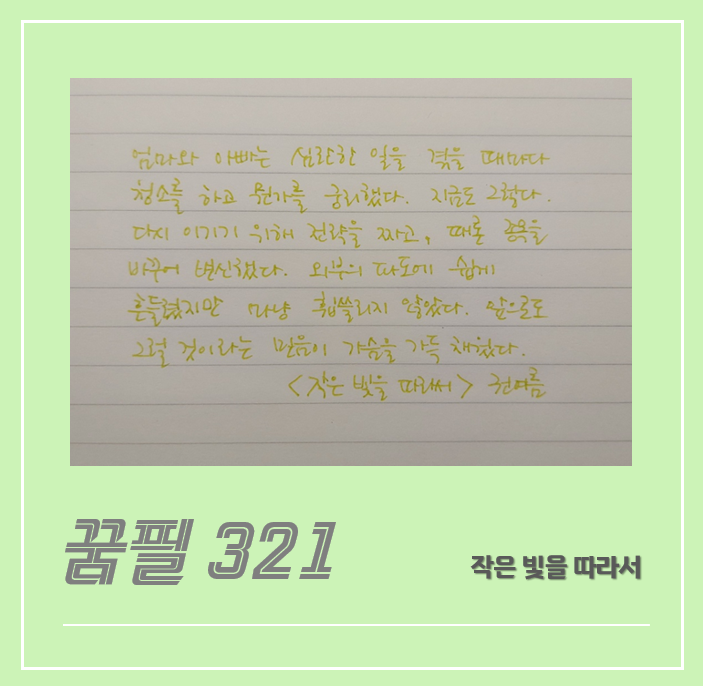 엄마와 아빠는 심란한 일을 겪을 때마다
청소를 하고 뭔가를 궁리했다. 지금도 그렇다.
다시 이기기 위해 전략을 짜고, 때론 종목을
바꾸어 변신했다. 외부의 파도에 쉽게
흔들렸지만 마냥 휩쓸리지 않았다. 앞으로도
그럴 것이라는 믿음이 가슴을 가득 채웠다.
<작은 빛을 따라서> 권여름
꿈필 321
작은 빛을 따라서